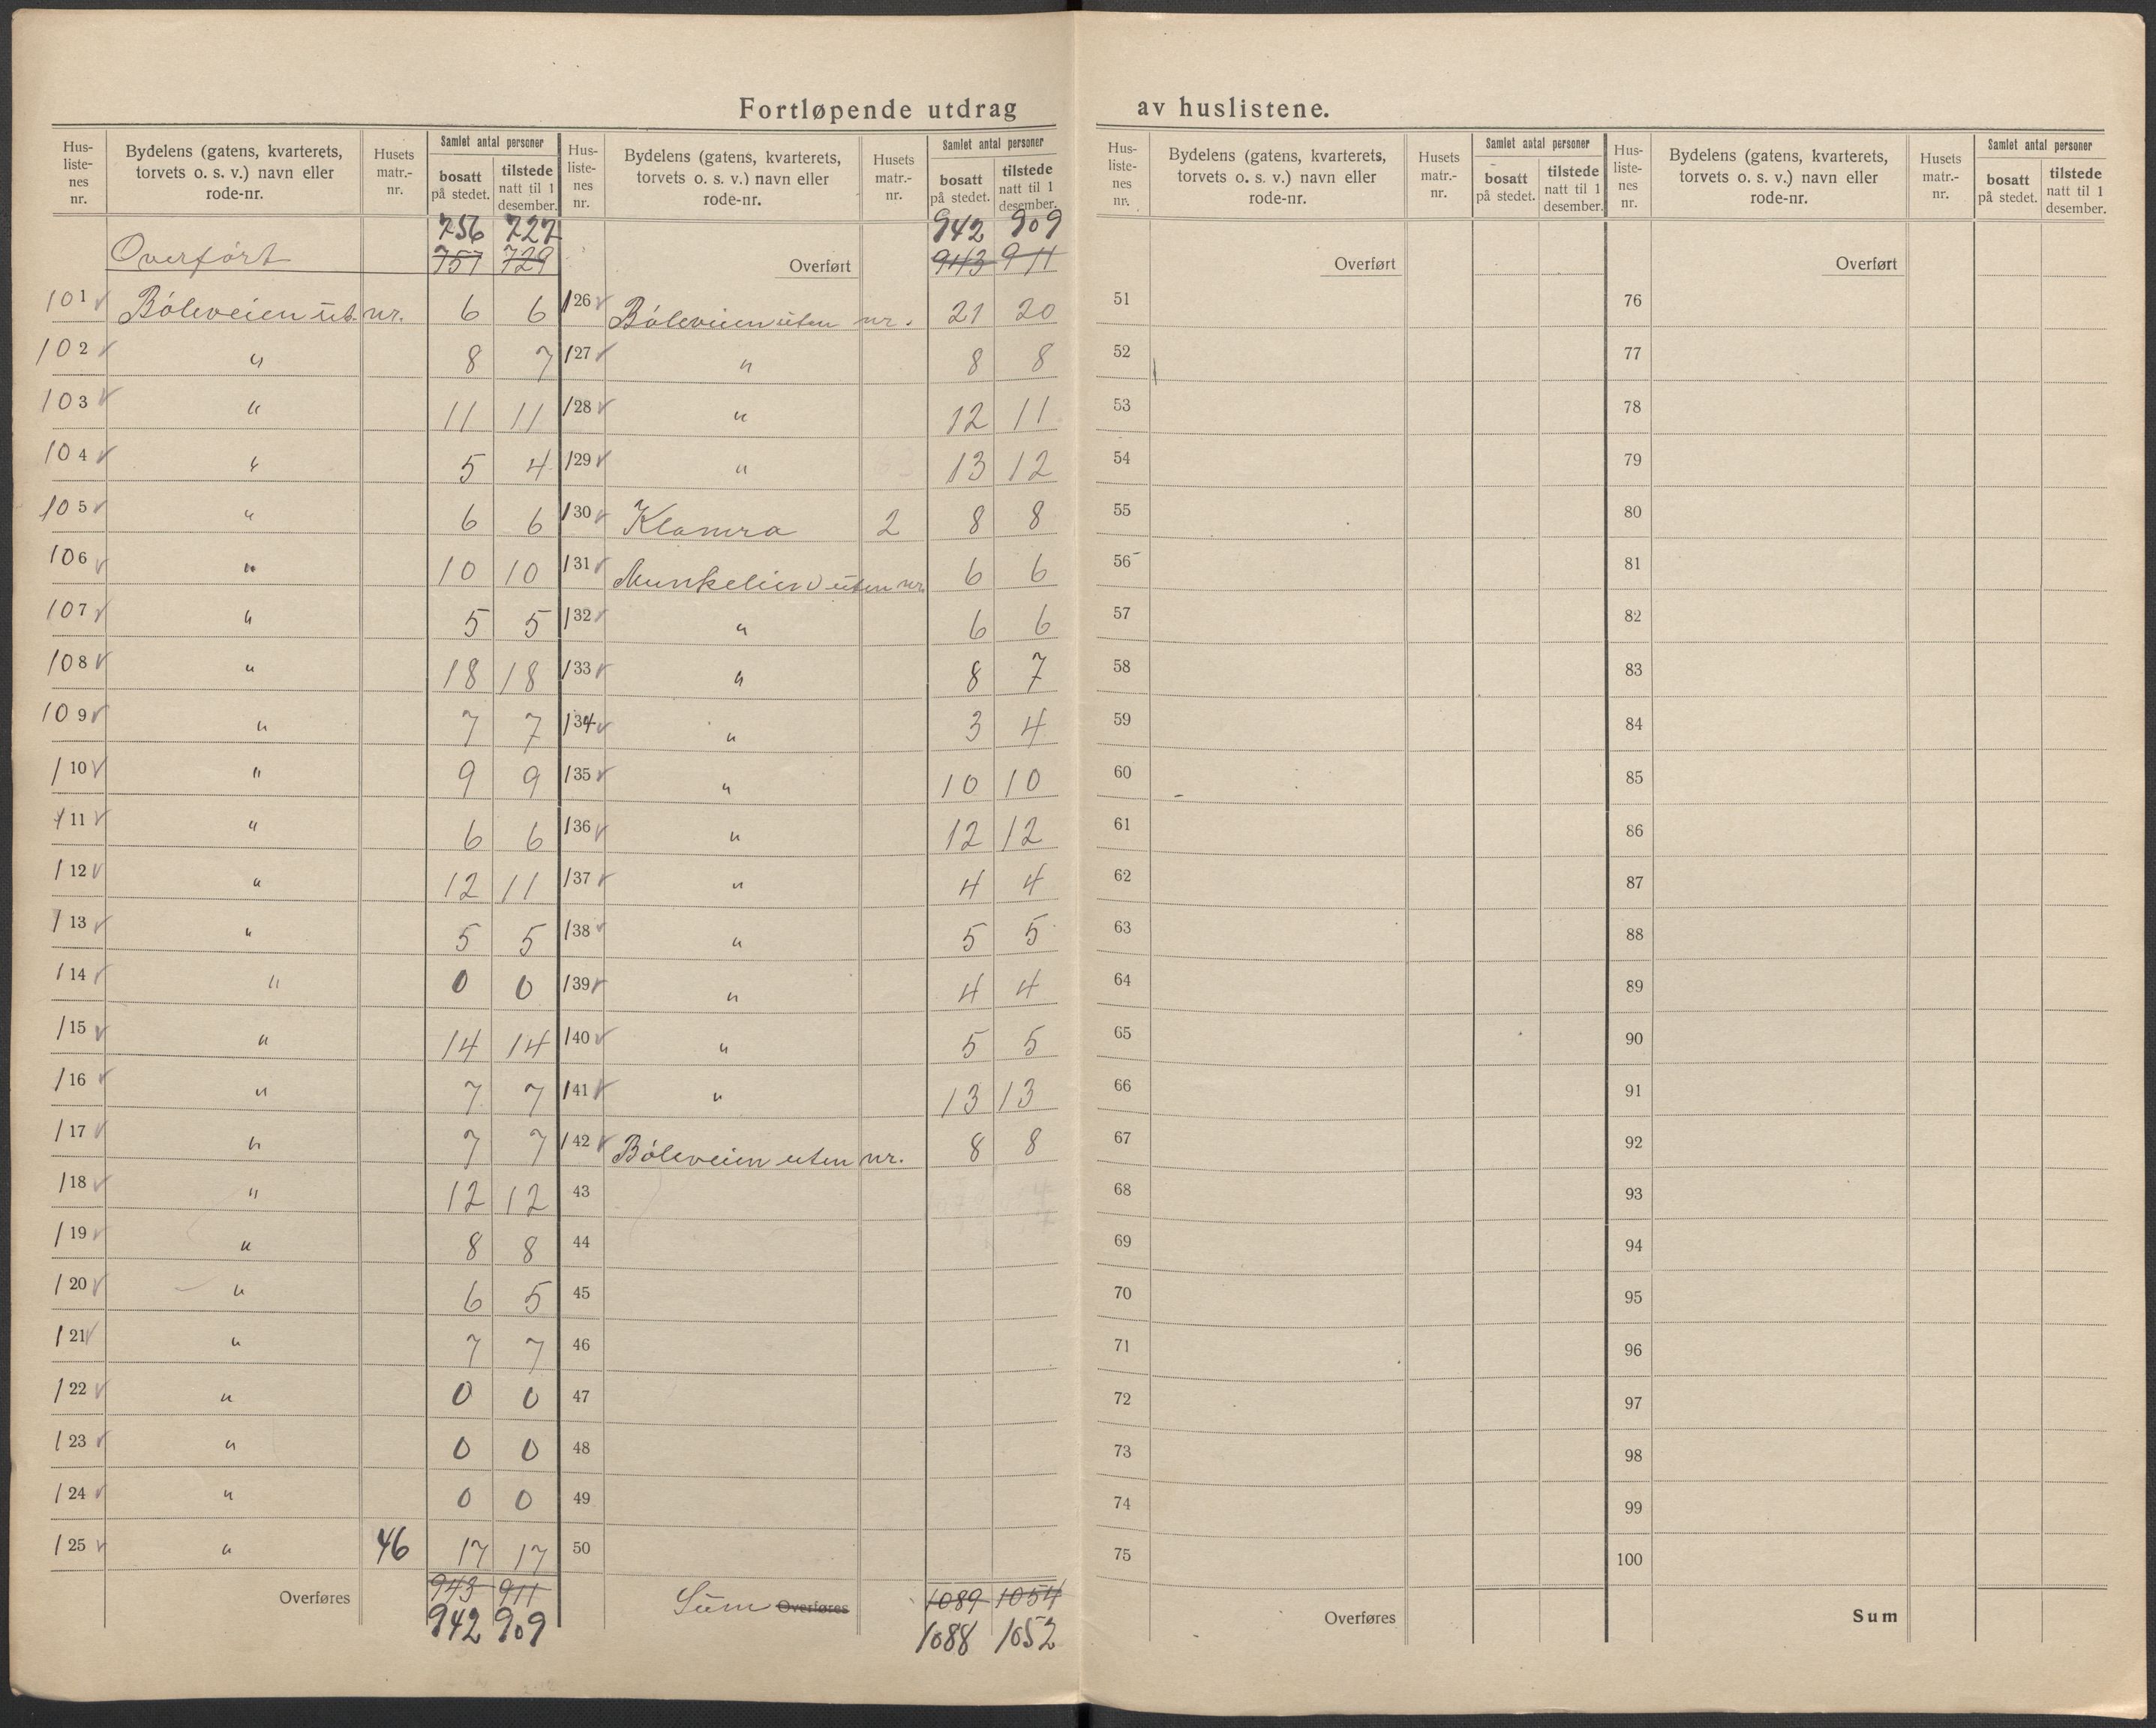 Fortløpende utdrag av huslistene.
Hus-liste-nes nr. Bydelens (gatens, kvarterets, torvets o. s. v.) navn eller rode-nr. Husets matr.-nr. Samlet antal personer bosatt på stedet. tilstede natt til 1 desember.
756 727
Overført 757 729
101 Böleveien ut. nr. 6 6
102 " 8 7
103 " 11 11
104 " 5 4
105 " 6 6
106 " 10 10
107 " 5 5
108 " 18 18
109 " 7 7
110 " 9 9
111 " 6 6
112 " 12 11
113 " 5 5
114 " 0 0
115 " 14 14
116 " 7 7
117 " 7 7
118 " 12 12
119 " 8 8
120 " 6 5
121 " 7 7
122 " 0 0
123 " 0 0
124 " 0 0
125 " 46 17 17
Overføres 943 911
942 909
Hus-liste-nes nr. Bydelens (gatens, kvarterets, torvets o. s. v.) navn eller rode-nr. Husets matr.-nr. Samlet antal personer bosatt på stedet. tilstede natt til 1 desember.
942 909
Overført 943 911
126 Böleveien uten nr. 21 20
127 " 8 8
128 " 12 11
129 " 13 12
130 Klamra 2 8 8
131 Munkelien uten nr. 6 6
132 " 6 6
133 " 8 7
134 " 3 4
135 " 10 10
136 " 12 12
137 " 4 4
138 " 5 5
139 " 4 4
140 " 5 5
141 " 13 13
142 Böleveien uten nr. 8 8
43
44
45
46
47
48
49
50
Sum Overføres 1089 1054
1088 1052
Hus-liste-nes nr. Bydelens (gatens, kvarterets, torvets o. s. v.) navn eller rode-nr. Husets matr.-nr. Samlet antal personer bosatt på stedet. tilstede natt til 1 desember.
Overført
51
52
53
54
55
56
57
58
59
60
61
62
63
64
65
66
67
68
69
70
71
72
73
74
75
Overføres
Hus-liste-nes nr. Bydelens (gatens, kvarterets, torvets o. s. v.) navn eller rode-nr. Husets matr.-nr. Samlet antal personer bosatt på stedet. tilstede natt til 1 desember.
Overført
76
77
78
79
80
81
82
83
84
85
86
87
88
89
90
91
92
93
94
95
96
97
98
99
100
Sum